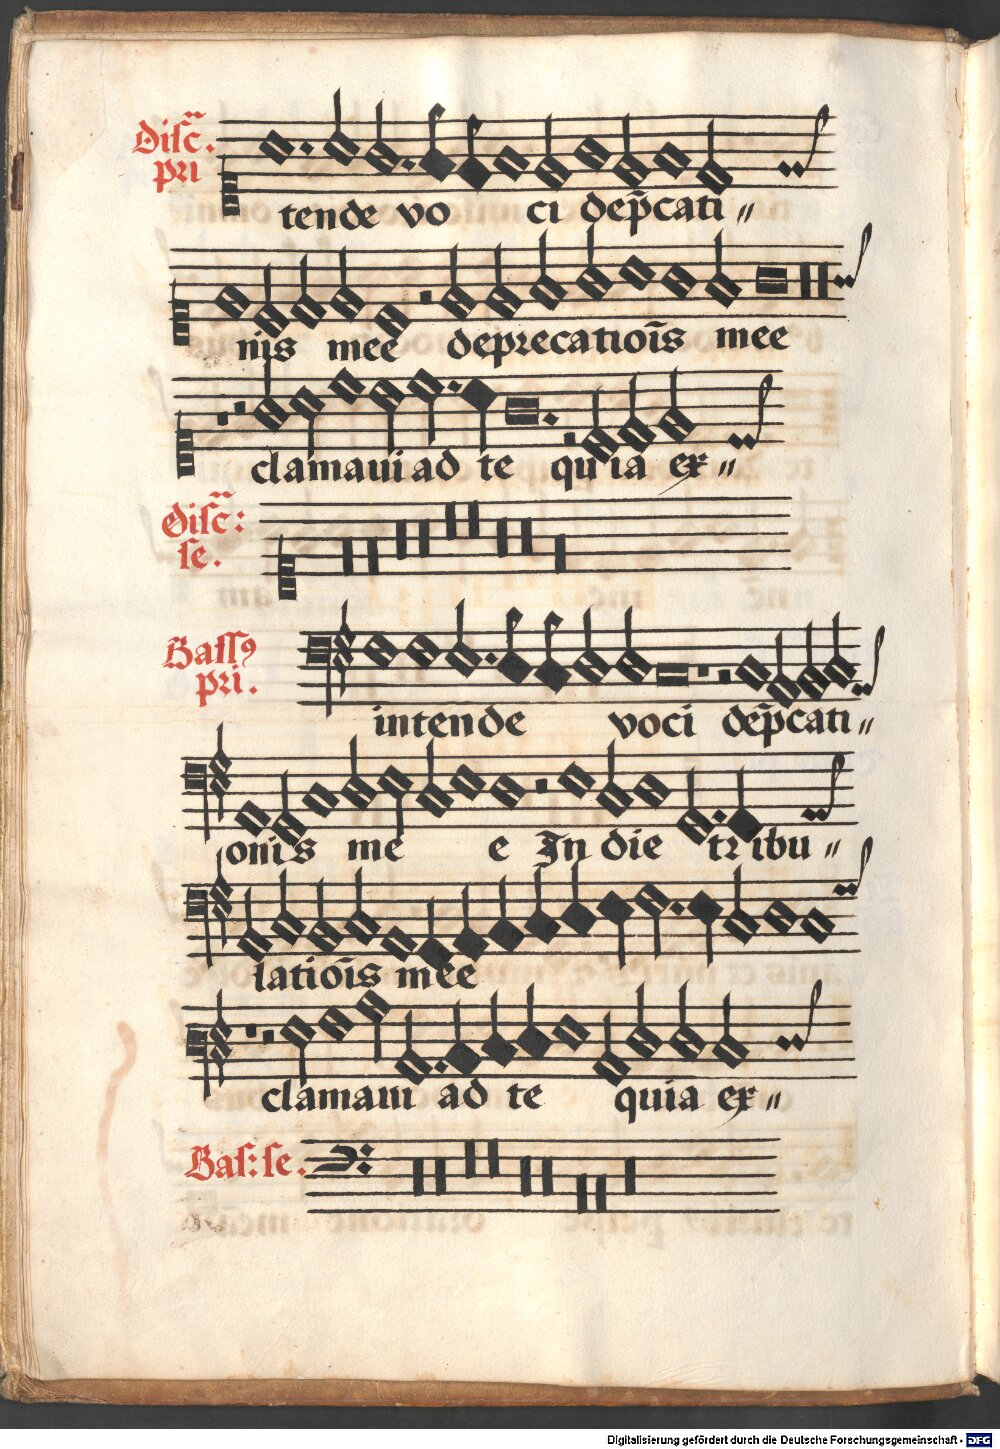 Disc̄.
pri
tende vo ci dep̄cati〃
nis mee deprecatiōis mee
clamavi ad te quia ex〃
Disc̄:
se.
Bassꝯ
pri.
intende voci dep̄cati〃
onis me e In die tribu〃
latiōis mee
clamavi ad te quia ex〃
Bas: se.
Digitalisierung gefördert durch die Deutsche Forschungsgemeinschaft - DFG